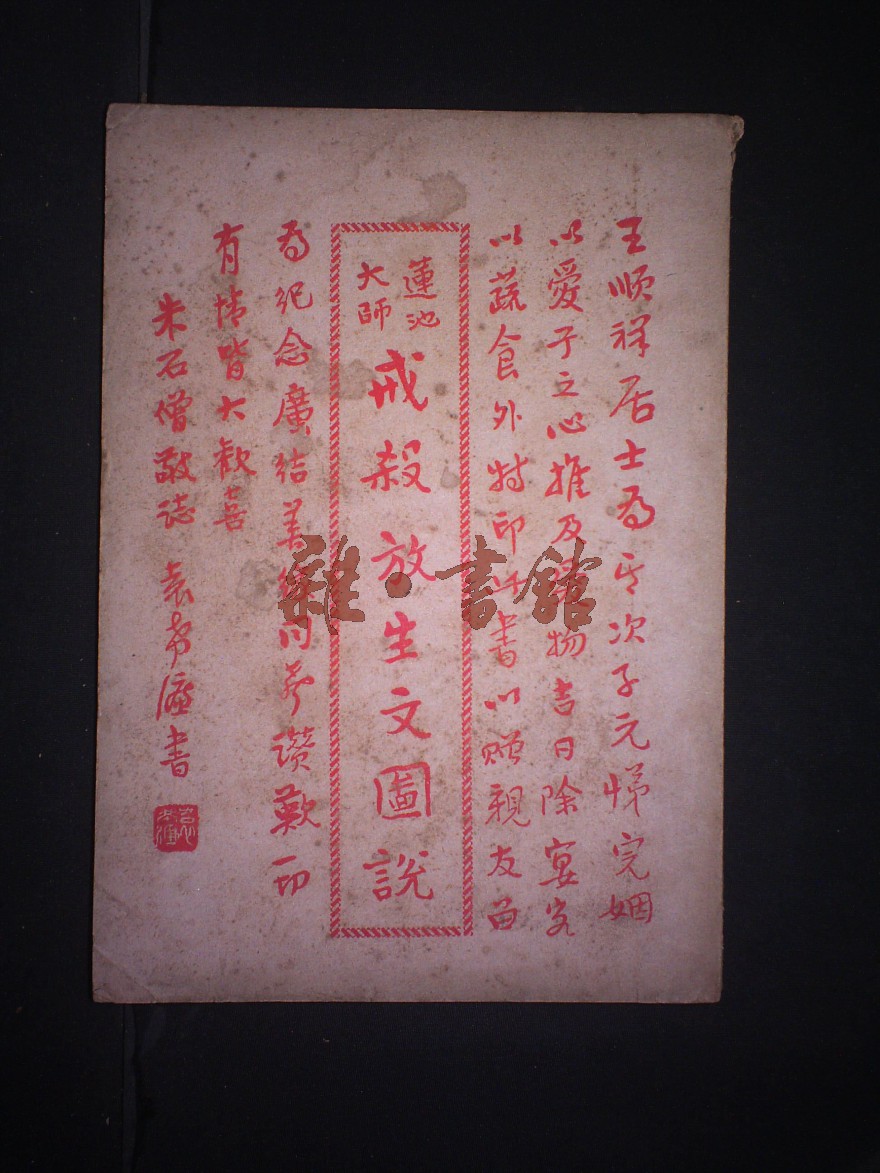 王順祥居士為其次子元悌完姻
以愛子之心推及護物吉日除宴客
以蔬食外特印此書以贈親友留
蓮池
大師
戒殺放生文圖說
為紀念廣結善緣同參讚歎一切
有情皆大歡喜
朱石僧敬誌 袁希濂書
雜·書館